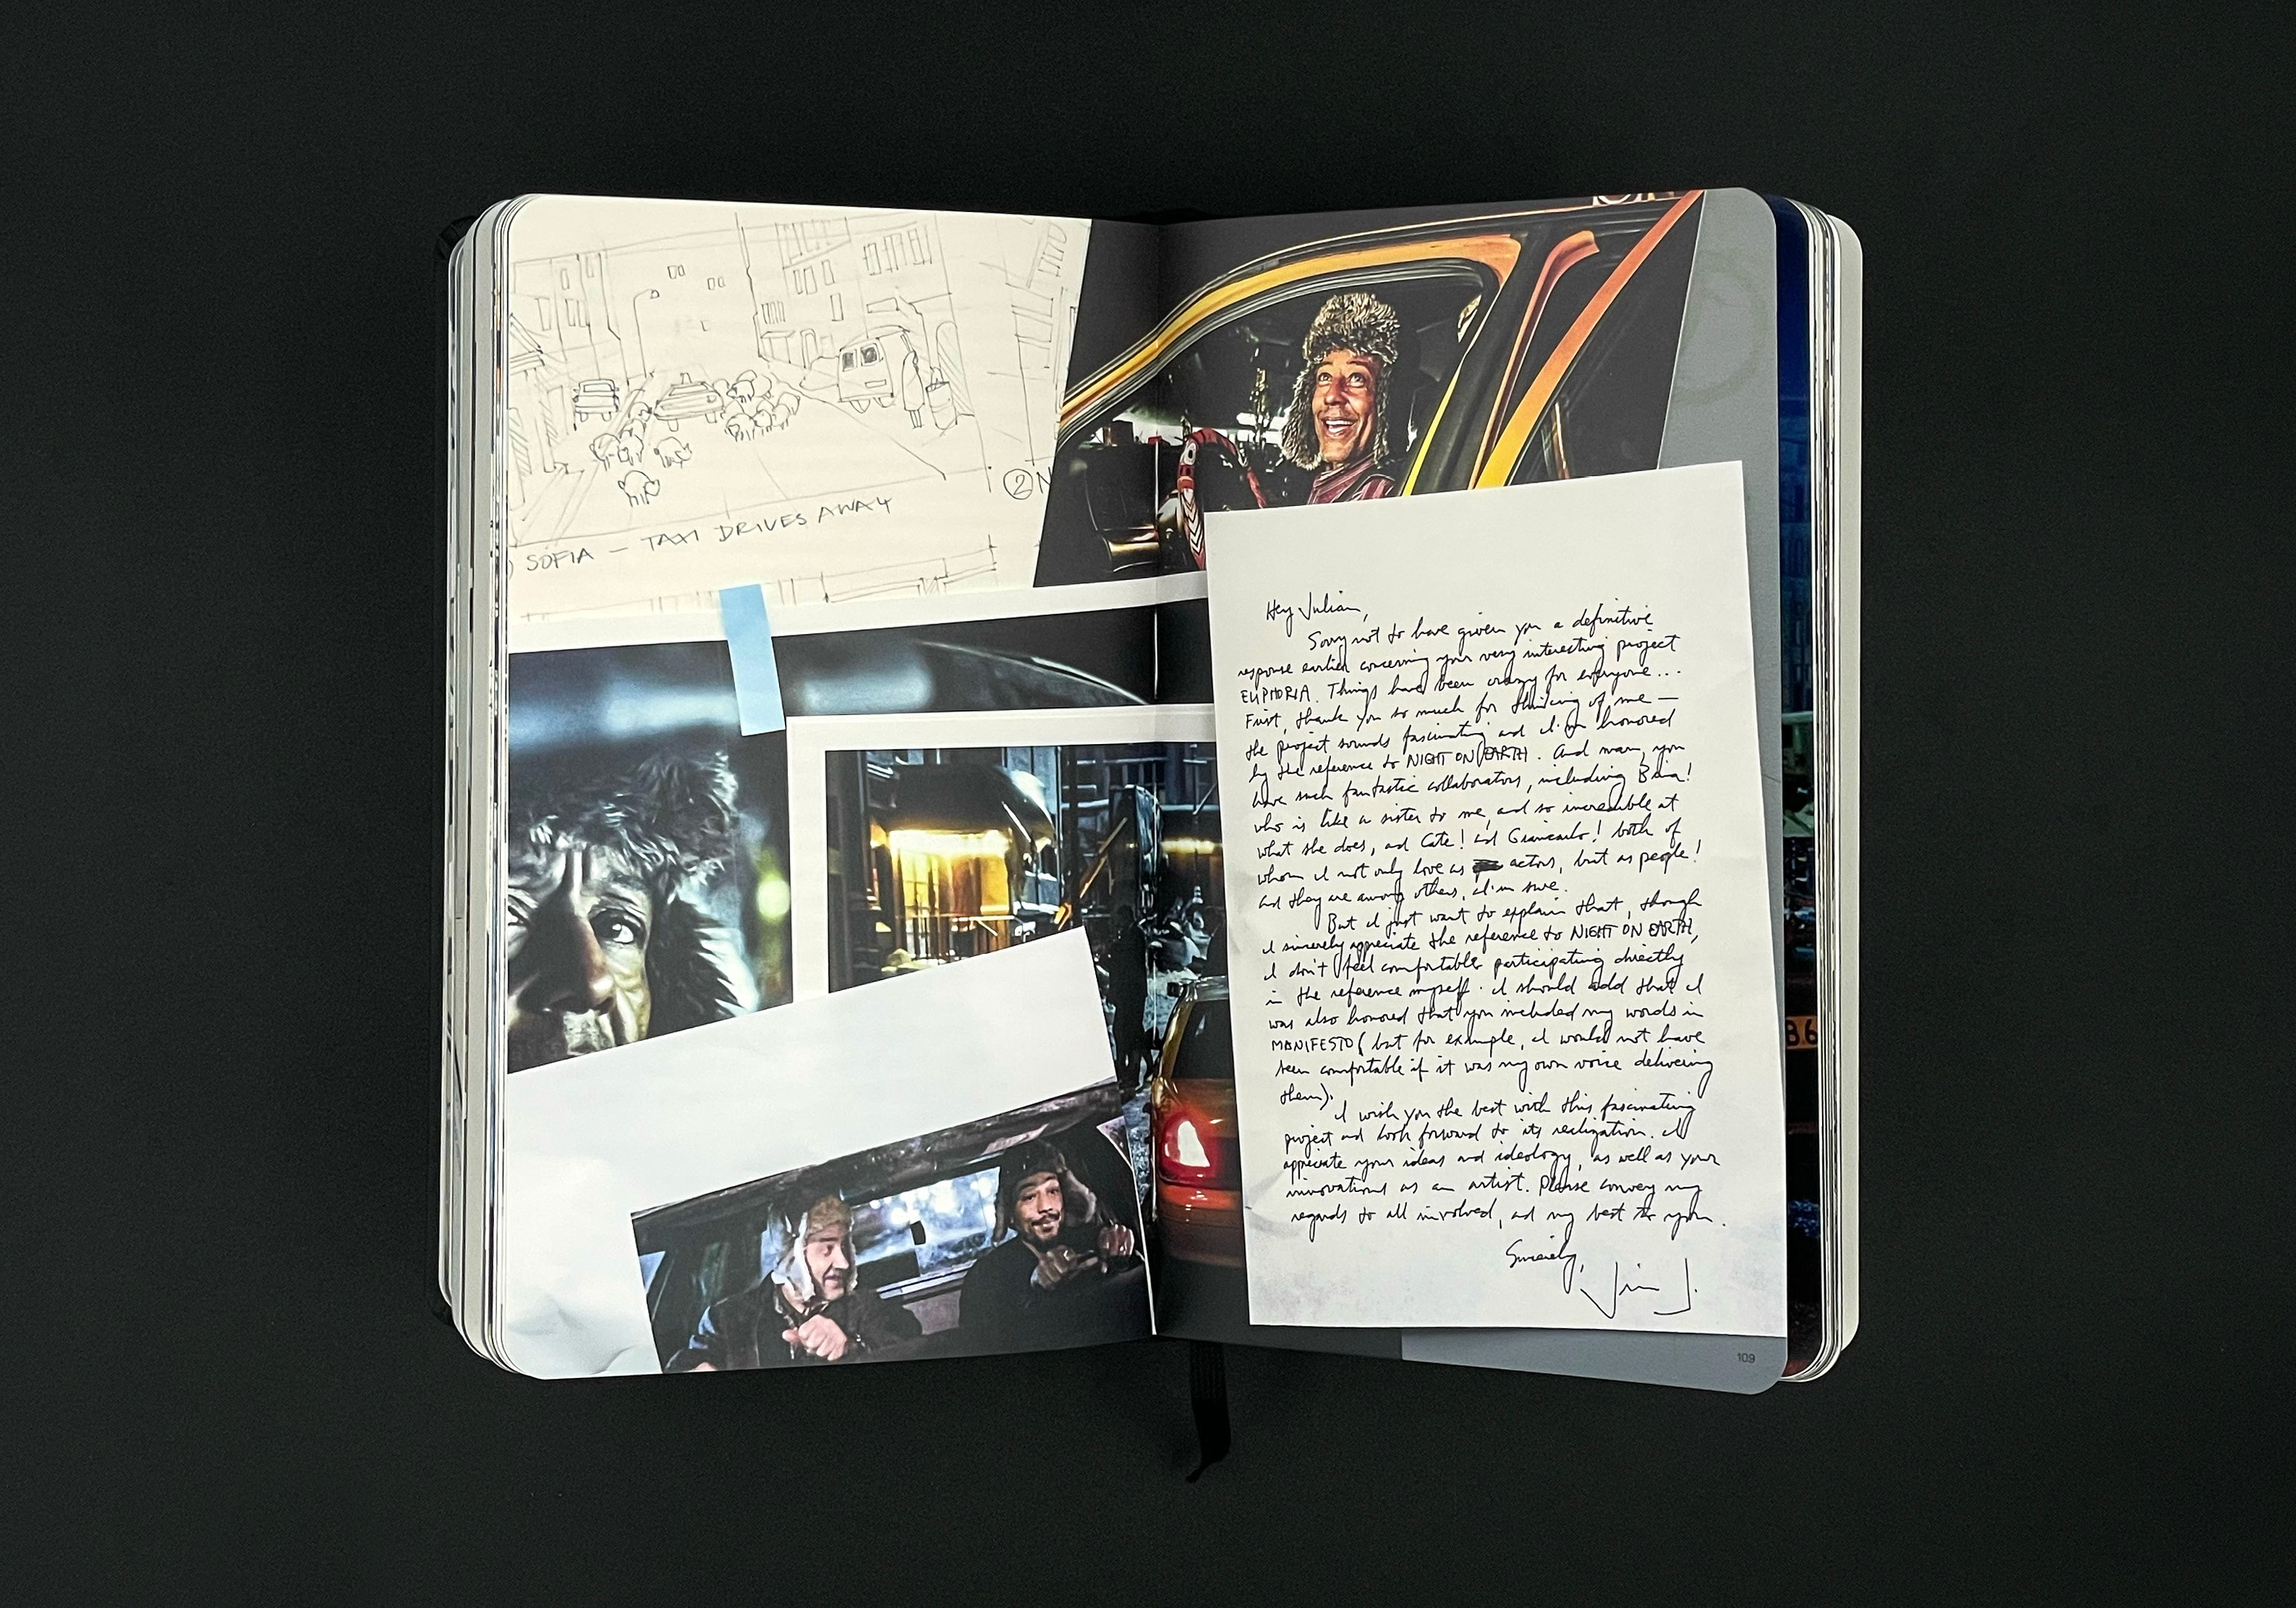 SOFIA – TAXI DRIVES AWAY
2 N
Hey Julian,
Sorry not to have given you a definitive
response earlier concerning your very interesting project
EUPHORIA. Things have been crazy for everyone...
First, thank you so much for thinking of me —
the project sounds fascinating and I'm honored
by the reference to NIGHT ON EARTH. And man, you
have such fantastic collaborators, including Bina!
who is like a sister to me, and so incredible at
what she does, and Cate! and Giancarlo! both of
whom I not only love as actors, but as people!
and they are among others, I'm sure.
But I just want to explain that, though
I sincerely appreciate the reference to NIGHT ON EARTH,
I don't feel comfortable participating directly
in the reference myself. I should add that I
was also honored that you included my words in
MANIFESTO (but for example, I would not have
been comfortable if it was my own voice delivering
them).
I wish you the best with this fascinating
project and look forward to its realization. I
appreciate your ideas and ideology, as well as your
innovations as an artist. Please convey my
regards to all involved, and my best to you.
Sincerely,
Jim J.
109
86